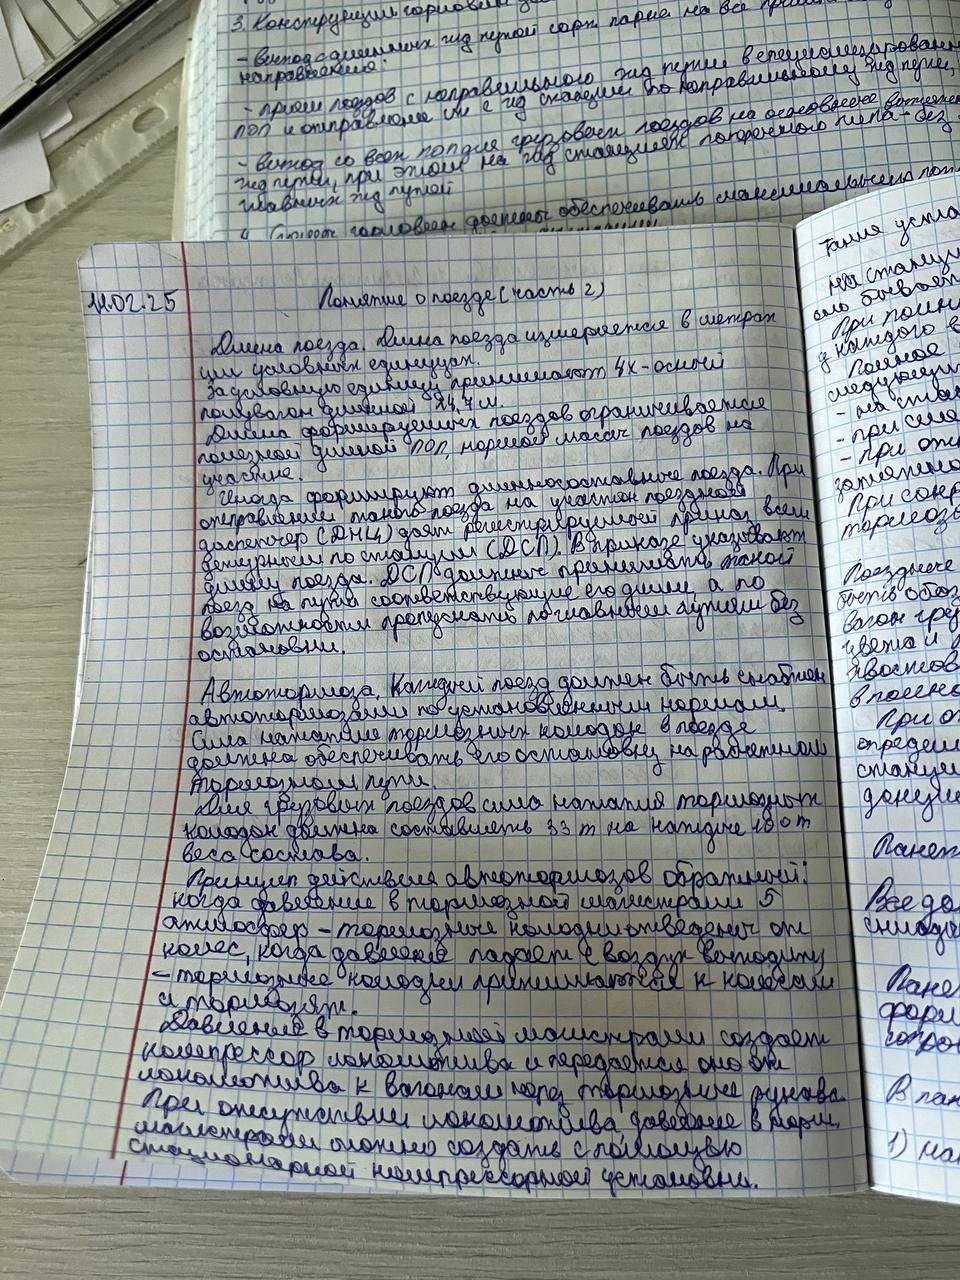 3. Конструкции горловин
- выход с главных жд путей сорт. парка на все
направления:
- приём поездов с направленного жд пути в специализированн
ПОП и отправление их с жд станции по направленному жд пути,
- выход со всех ПОП для грузовых поездов на основные вытяжн
жд пути, при этом на жд станциях поперечного типа - без
главных жд путей
4. горловин должны обеспечивать максимально
11.02.25
Понятие о поезде (часть 2)
Длина поезда. Длина поезда измеряется в метрах
или условных единицах.
За условную единицу принимают 4х-осный
полувагон длинной 14,7 м.
Длина формируемых поездов ограничивается
полезной длиной ПОП, нормой массы поездов на
участке.
Иногда формируют длинносоставные поезда. При
отправлении такого поезда на участок поездной
диспетчер (ДНЦ) даёт регистрируемый приказ всем
дежурным по станции (ДСП). В приказе указывают
длину поезда. ДСП должны принимать такой
поезд на пути соответствующие его длине, а по
возможности пропускать по главным путям без
остановки.
Автотормоза. Каждый поезд должен быть снабжен
автотормозами по установленным нормам.
Сила нажатия тормозных колодок в поезде
должна обеспечивать его остановку на расчетном
тормозном пути.
Для грузовых поездов сила нажатия тормозных
колодок должна составлять 33 т на каждые 100 т
веса состава.
Принцип действия автотормозов обратный:
когда давление в тормозной магистрали 5
атмосфер - тормозные колодки отведены от
колес, когда давление падает и воздух выходит
- тормозные колодки прижимаются к колесам
и тормозят.
Давление в тормозной магистрали создает
компрессор локомотива и передается оно от
локомотива к вагонам через тормозные рукава.
При отсутствии локомотива давление в торм.
магистрали можно создать с помощью
стационарной компрессорной установки.
на станци
При
у каждого в
Полное
следующи
- на ста
- при сме
- при от
При сокр
тормозо
Поездные
вагон гру
цвета и
хвостов
При от
определ
станци
Пакет
Все до
Паке
форм
В пак
1) на